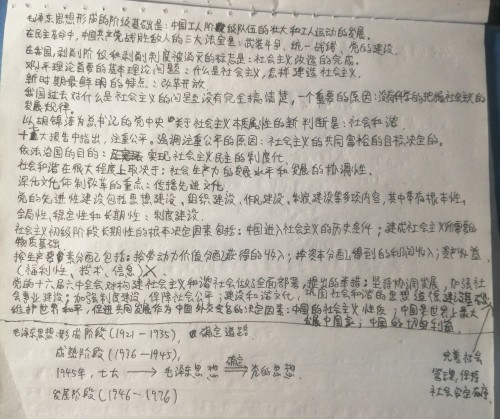 毛泽东思想形成的阶级基础是:中国工人阶级队伍的壮大和工人运动的发展.
在民主革命中,中国共产党战胜敌人的三大法宝是:武装斗争,统一战线,党的建设.
在我国,剥削阶级和剥削制度被消灭的标志是:社会主义改造的完成.
邓小平理论首要的基本理论问题:什么是社会主义,怎样建设社会主义.
新时期最鲜明的特点:改革开放
我国过去对什么是社会主义的问题没有完全搞清楚,一个重要的原因:没有科学的把握社会主义的
发展规律.
以胡锦涛为总书记的党中央 关于社会主义本质属性的新判断是:社会和谐
十七大报告中指出,注重公平.强调注重公平的原因:社会主义的共同富裕的目标决定的.
依法治国的目的:实现社会主义民主的制度化.
社会和谐在很大程度上取决于:社会生产力的发展水平和发展的协调性.
深化文化体制改革的重点:传播先进文化
党的先进性建设包括思想建设,组织建设,作风建设,制度建设等多项内容,其中带有根本性,
全局性,稳定性和长期性:制度建设.
社会主义初级阶段长期性的根本决定因素包括:中国进入社会主义的历史条件;建成社会主义所需要的
物质基础
按生产要素分配包括:按劳动力价值分配获得的收入;按资本分配得到的利润收入;资产收益
(福利性,技术,信息)X
党的十六届六中全会对构建社会主义和谐社会做了全面部署,提出的举措:坚持协调发展,加强社
会事业建设;加强制度建设,保障社会公平;建设和谐文化,巩固社会和谐的思想道德建设基础
维护世界和平,促进共同发展作为中国外交宗旨的决定因素:中国的社会主义性质,中国是世界上最大
发展中国家,中国的切身利益
毛泽东思想:形成阶段(1921-1935),确定道路
成熟阶段(1936-1945),
1945年,七大 → 毛泽东思想 确定 党的思想
发展阶段(1946-1976)
完善社会
管理,保持
社会安定有序